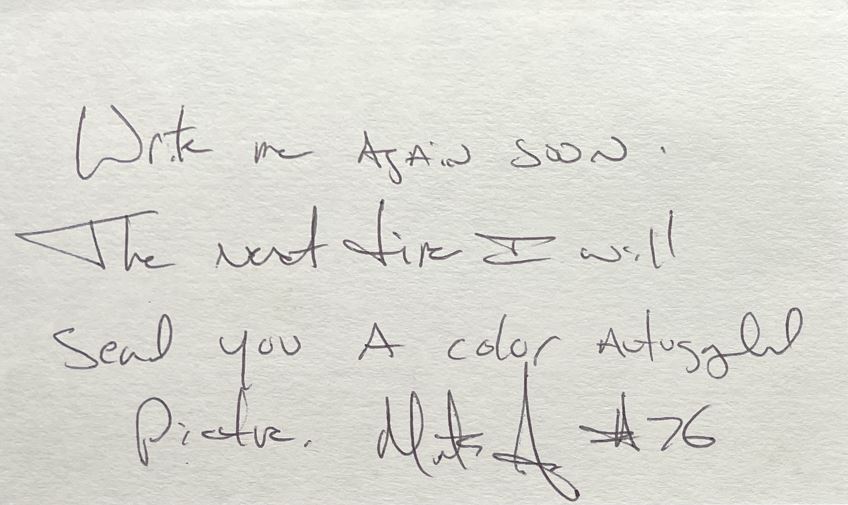 Write me Again soon.
The next time I will
Send you A color Autographed
Picture. #76